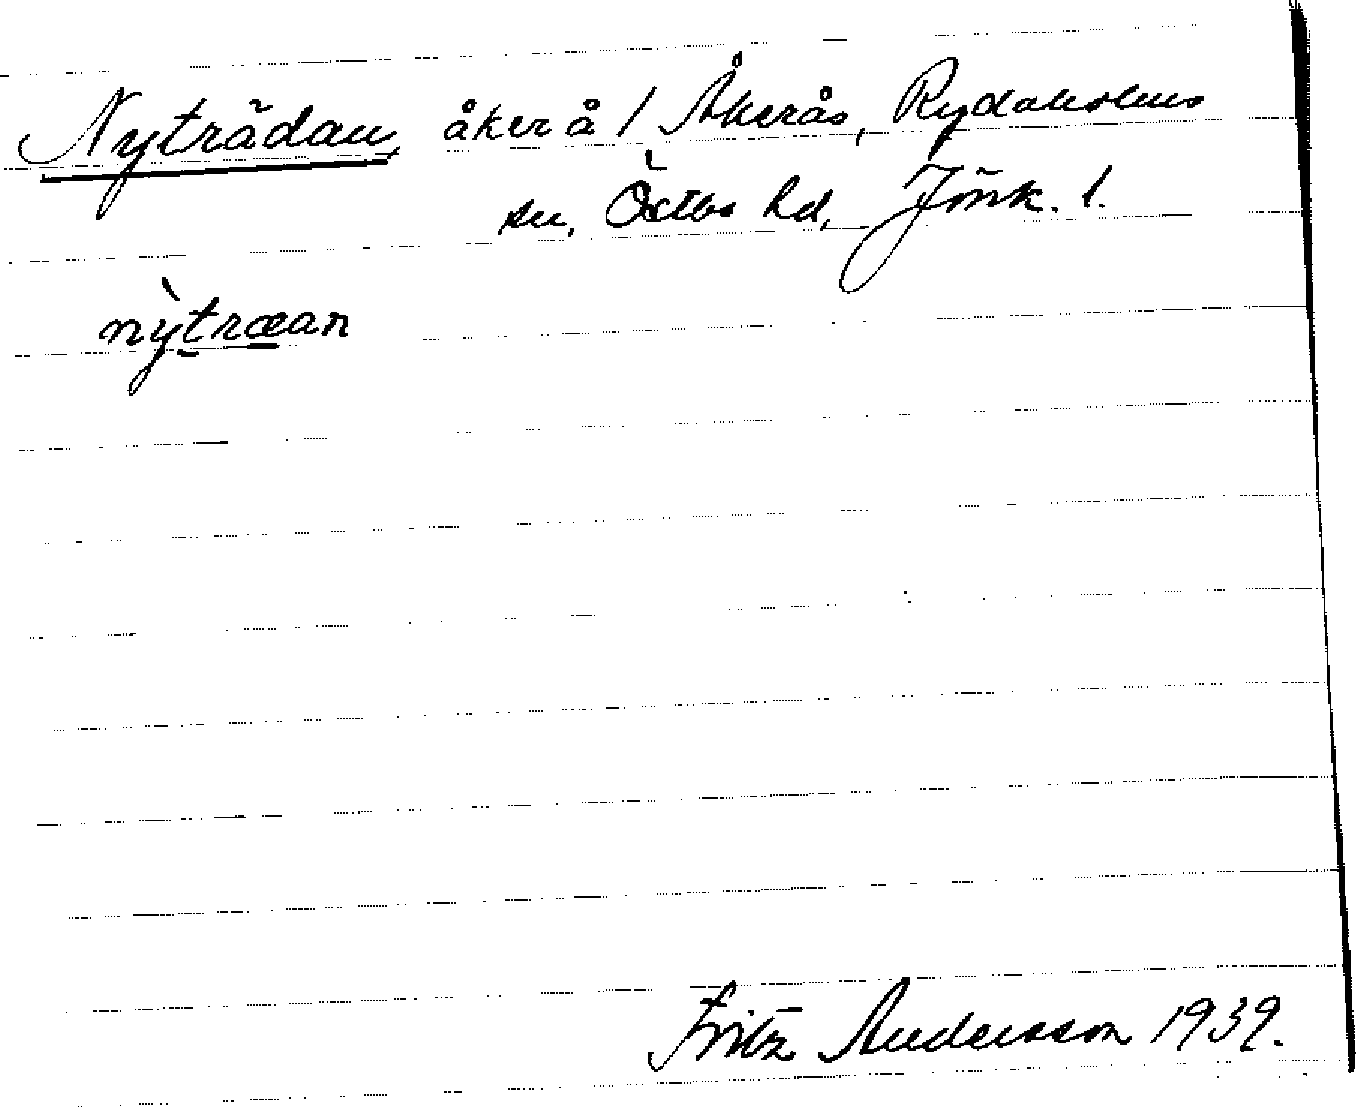 Nyträdan, åker å 1 Åkerås, Rydaholms
sn, Östbo hd, Jönk. l.
nỳtræan
Fritz Andersson 1939.